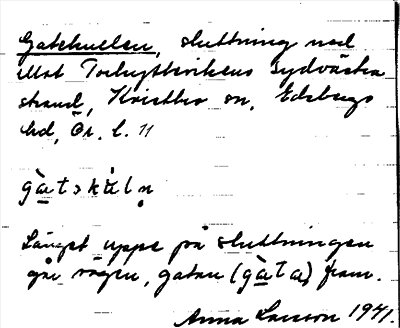 Gatekullen, sluttning ned
mot Torhyttevikens sydvästra
strand, Kristbr sn, Edsbergs
hd, Ör. l. 11
gàtəkùlṇ
Längst uppe på sluttningen
går vägen, gatan (gàta) fram.
Anna Larsson 1941.